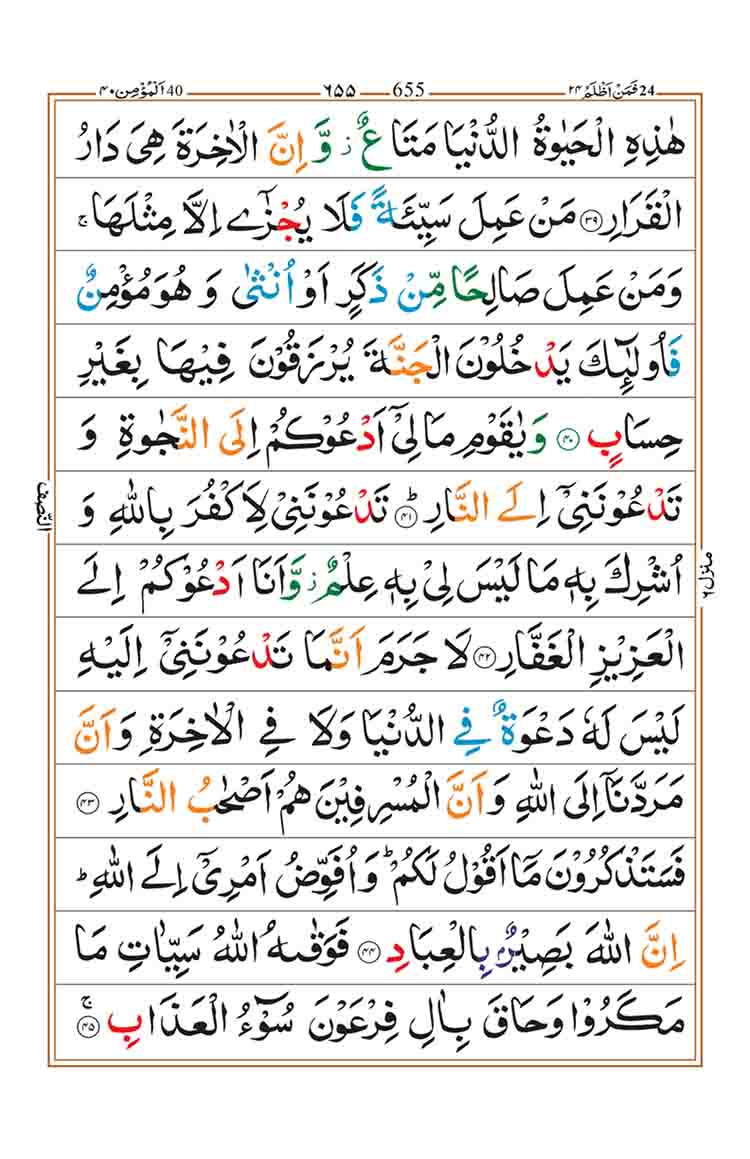 40 اَلْمُؤْمِن ۴۰ ۶۵۵ 655 24 فَمَنْ اَظْلَمُ ۲۴
هٰذِهِ الْحَيٰوةُ الدُّنْيَا مَتَاعٌ ؗ وَّ اِنَّ الْاٰخِرَةَ هِىَ دَارُ
الْقَرَارِ ۝۳۹ مَنْ عَمِلَ سَيِّئَةً فَلَا يُجْزٰٓى اِلَّا مِثْلَهَا ۚ
وَمَنْ عَمِلَ صَالِحًا مِّنْ ذَكَرٍ اَوْ اُنْثٰى وَ هُوَ مُؤْمِنٌ
فَاُولٰٓئِكَ يَدْخُلُوْنَ الْجَنَّةَ يُرْزَقُوْنَ فِيْهَا بِغَيْرِ
حِسَابٍ ۝۴۰ وَ يٰقَوْمِ مَا لِىْۤ اَدْعُوْكُمْ اِلَى النَّجٰوةِ وَ
تَدْعُوْنَنِىْۤ اِلَى النَّارِ ؕ ۝۴۱ تَدْعُوْنَنِىْ لِاَكْفُرَ بِاللّٰهِ وَ
اُشْرِكَ بِهٖ مَا لَيْسَ لِىْ بِهٖ عِلْمٌ ؗ وَّ اَنَا اَدْعُوْكُمْ اِلَى
الْعَزِيْزِ الْغَفَّارِ ۝۴۲ لَا جَرَمَ اَنَّمَا تَدْعُوْنَنِىْۤ اِلَيْهِ
لَيْسَ لَهٗ دَعْوَةٌ فِى الدُّنْيَا وَلَا فِى الْاٰخِرَةِ وَ اَنَّ
مَرَدَّنَاۤ اِلَى اللّٰهِ وَ اَنَّ الْمُسْرِفِيْنَ هُمْ اَصْحٰبُ النَّارِ ۝۴۳
فَسَتَذْكُرُوْنَ مَاۤ اَقُوْلُ لَكُمْ ؕ وَ اُفَوِّضُ اَمْرِىْۤ اِلَى اللّٰهِ ؕ
اِنَّ اللّٰهَ بَصِيْرٌۢ بِالْعِبَادِ ۝۴۴ فَوَقٰٮهُ اللّٰهُ سَيِّاٰتِ مَا
مَكَرُوْا وَحَاقَ بِاٰلِ فِرْعَوْنَ سُوْٓءُ الْعَذَابِ ۚ ۝۴۵
النّصف
منزل ۶